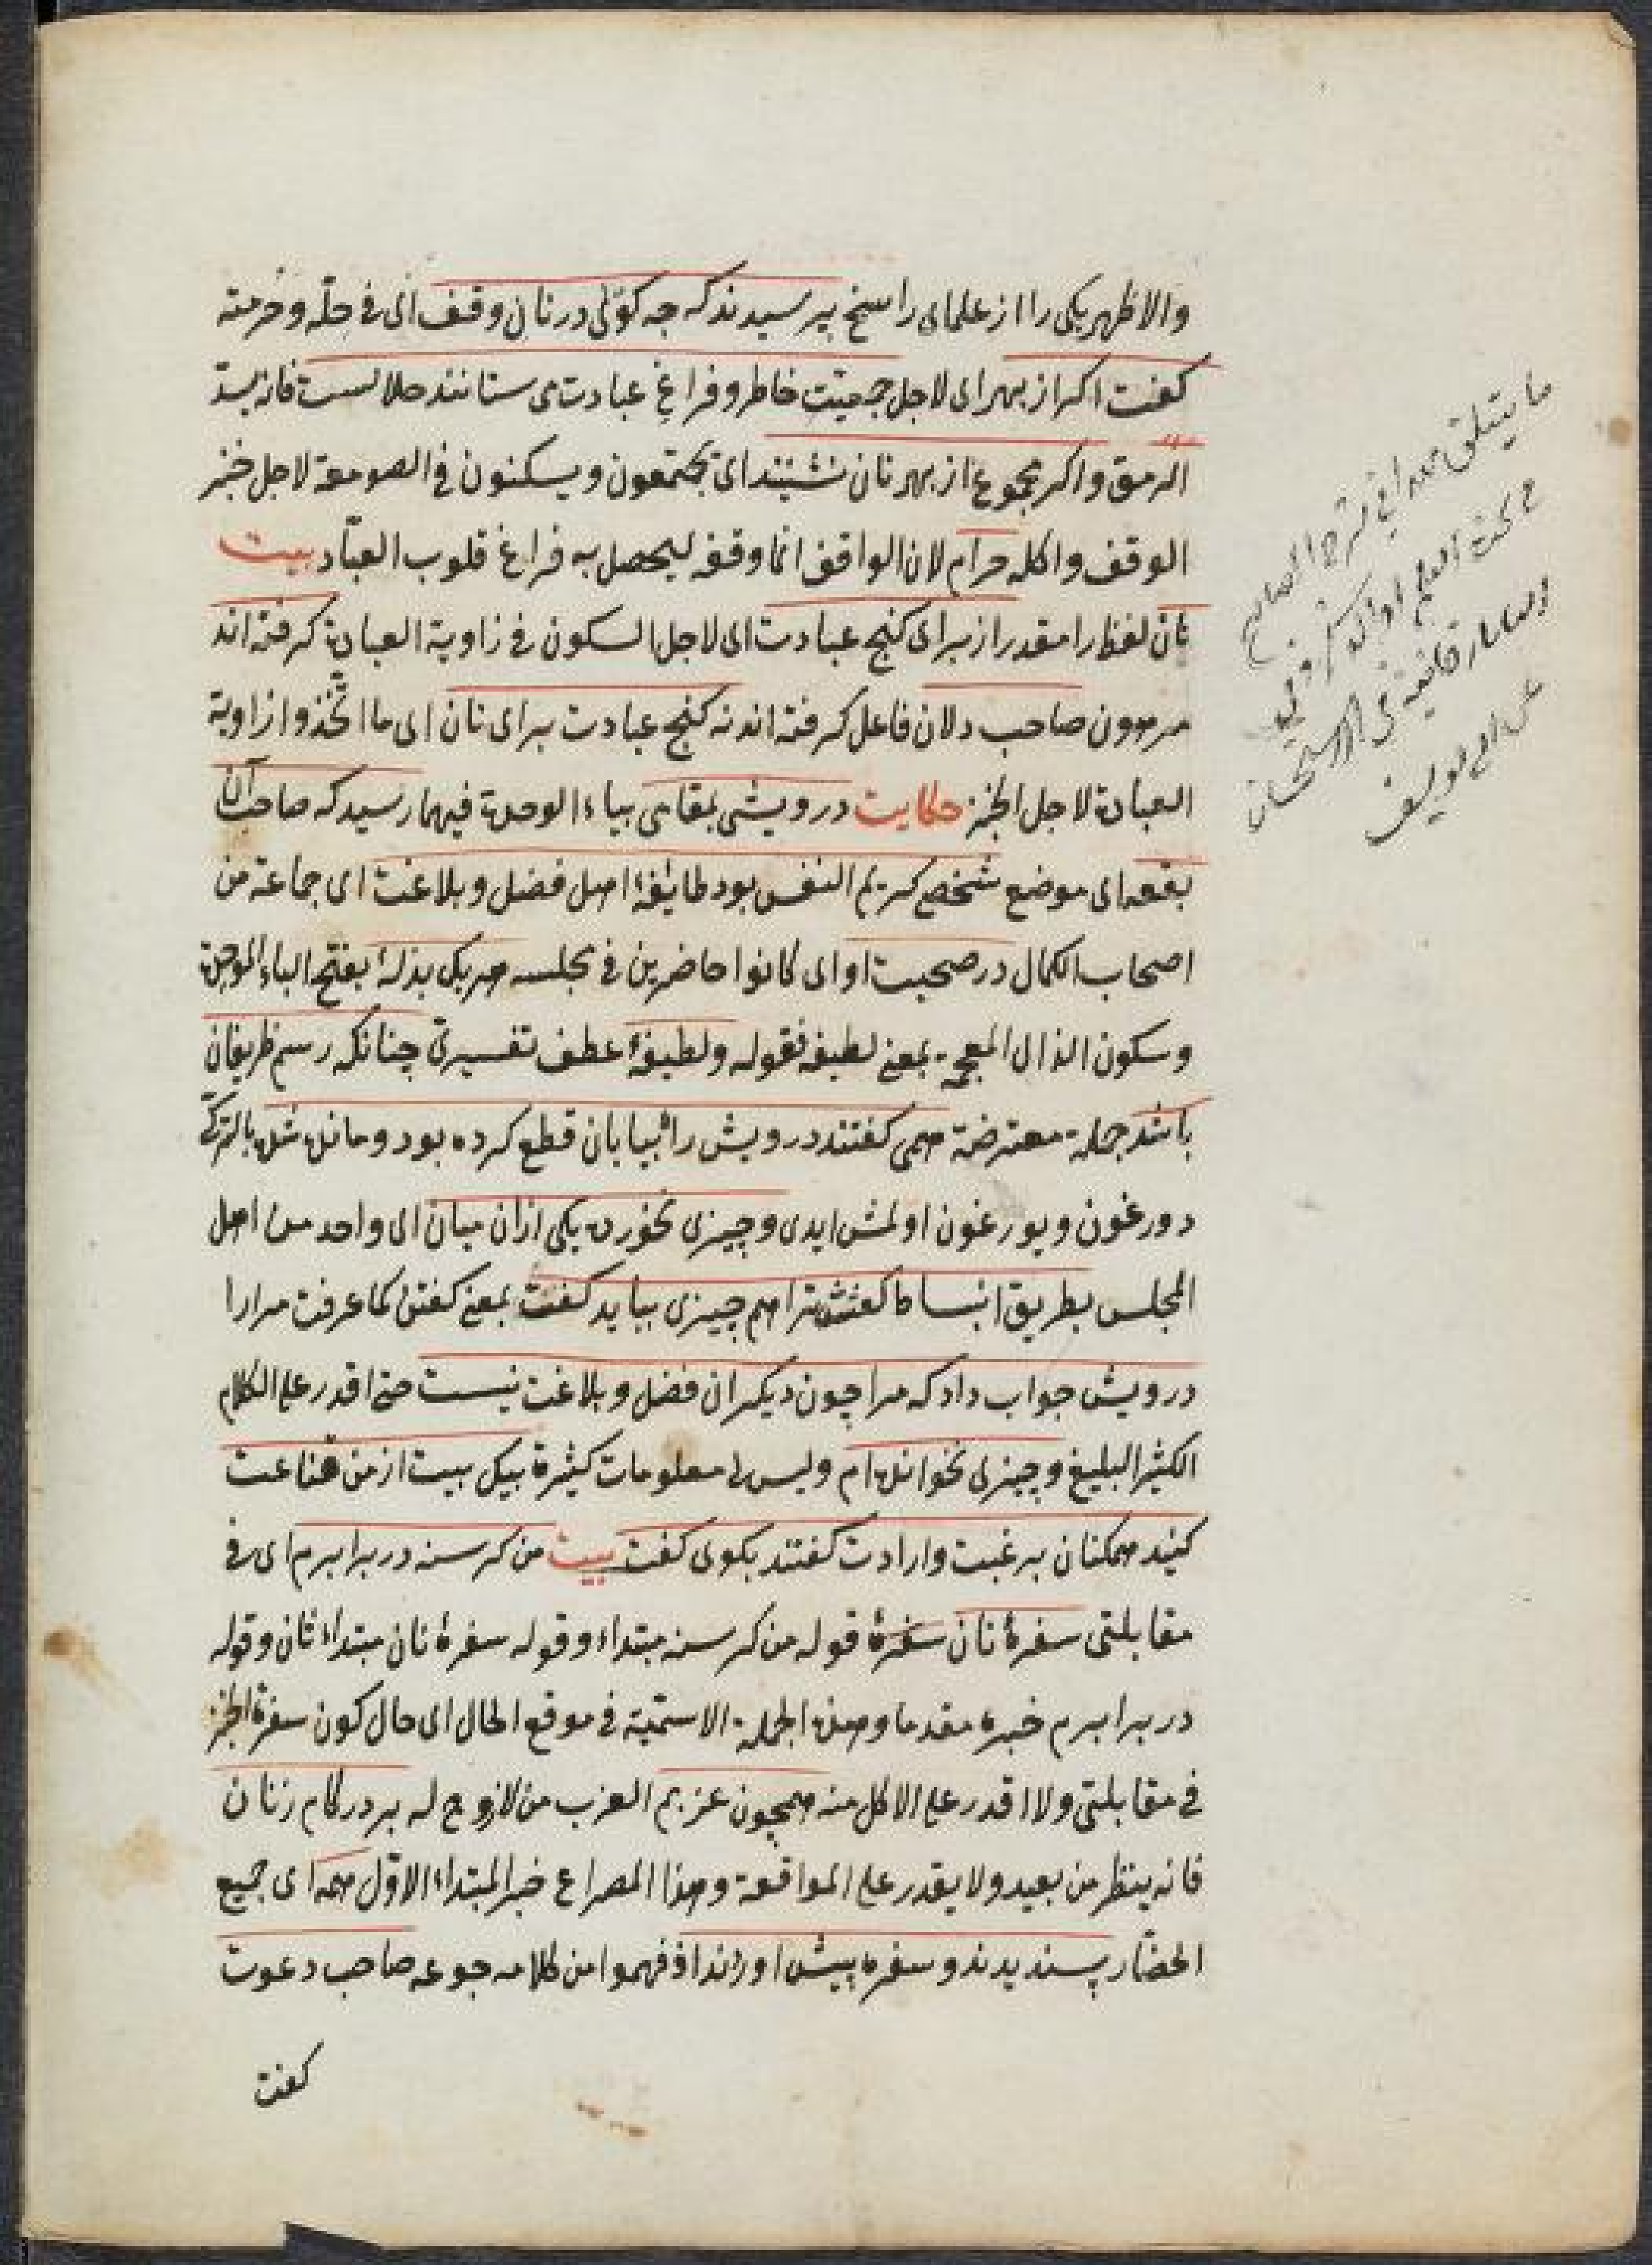 والاظهر يكى را از علماى راسخ پرسيدند كه چه كوئى در نان وقف اى فى حلّه وحرمته
كفت اكر از بهر اى لاجل جمعيّت خاطر وفراغِ عبادت مى ستانند حلالست فانه يسدّ
الرمق واكر مجموع از بهر نان نشينند اى يجتمعون ويسكنون فى الصومعة لاجل خبز
الوقف واكله حرام لان الواقف انما وقفه ليحصل به فراغ قلوب العبّاد بيت
نان لفظ را مقدر از براى كنج عبادت اى لاجل السكون فى زاوية العبادة كرفته اند
صاحب دلان فاعل كرفته اند نه كنج عبادت براى نان اى ما اتّخذوا زاوية
العبادة لاجل الخبز حكايت درويشى بمقامى بياء الوحدة فيهما رسيد كه صاحب آن
بقعه اى موضع شخص كريم النفس بود طايفهٔ اهل فضل وبلاغت اى جماعة من
اصحاب الكمال در صحبت او اى كانوا حاضرين فى مجلسه هر يكى بذلهٔ بفتح الباء الموحدة
وسكون الذال المعجمة بمعنى لطيفه فقوله ولطيفهٔ عطف تفسيرىّ چنانكه رسم ظريفان
باشد جملة معترضة همى كفتند درويش راه بيابان قطع كرده بود ومانده شده بالتركىّ
دورغون ويورغون اولمش ايدى وچيزى نخورده يكى ازان ميان اى واحد من اهل
المجلس بطريق انبساط كفتش ترا هم چيزى ببايد كفت بمعنى كفتن كما عرفت مرارا
درويش جواب داد كه مرا چون ديكران فضل وبلاغت نيست حتى اقدر على الكلام
الكثير البليغ وچيزى نخوانده ام وليس لى معلومات كثيرة بيك بيت از من قناعت
كنيد همكنان برغبت وارادت كفتند بكوى كفت بيت من كرسنه در برابرم اى فى
مقابلتى سفرهٔ نان سفرهٔ قوله من كرسنه مبتداء وقوله سفرهٔ نان مبتداء ثان وقوله
در برابرم خبره مقدما وهذه الجملة الاسميّة فى موقع الحال اى حال كون سفرة الخبز
فى مقابلتى ولا اقدر على الاكل منه همچون عزبم العزب من لازوج له بر در حمام زنان
فانه ينظر من بعيد ولا يقدر على المواقعة وهذا المصراع خبر المبتداء الاوّل همه اى جميع
الحضّار پسنديدند وسفره پيش اوردند اذ فهموا من كلامه جوعه صاحب دعوت
كفت
ما يتعلق بهذا فى شرح المصابيح